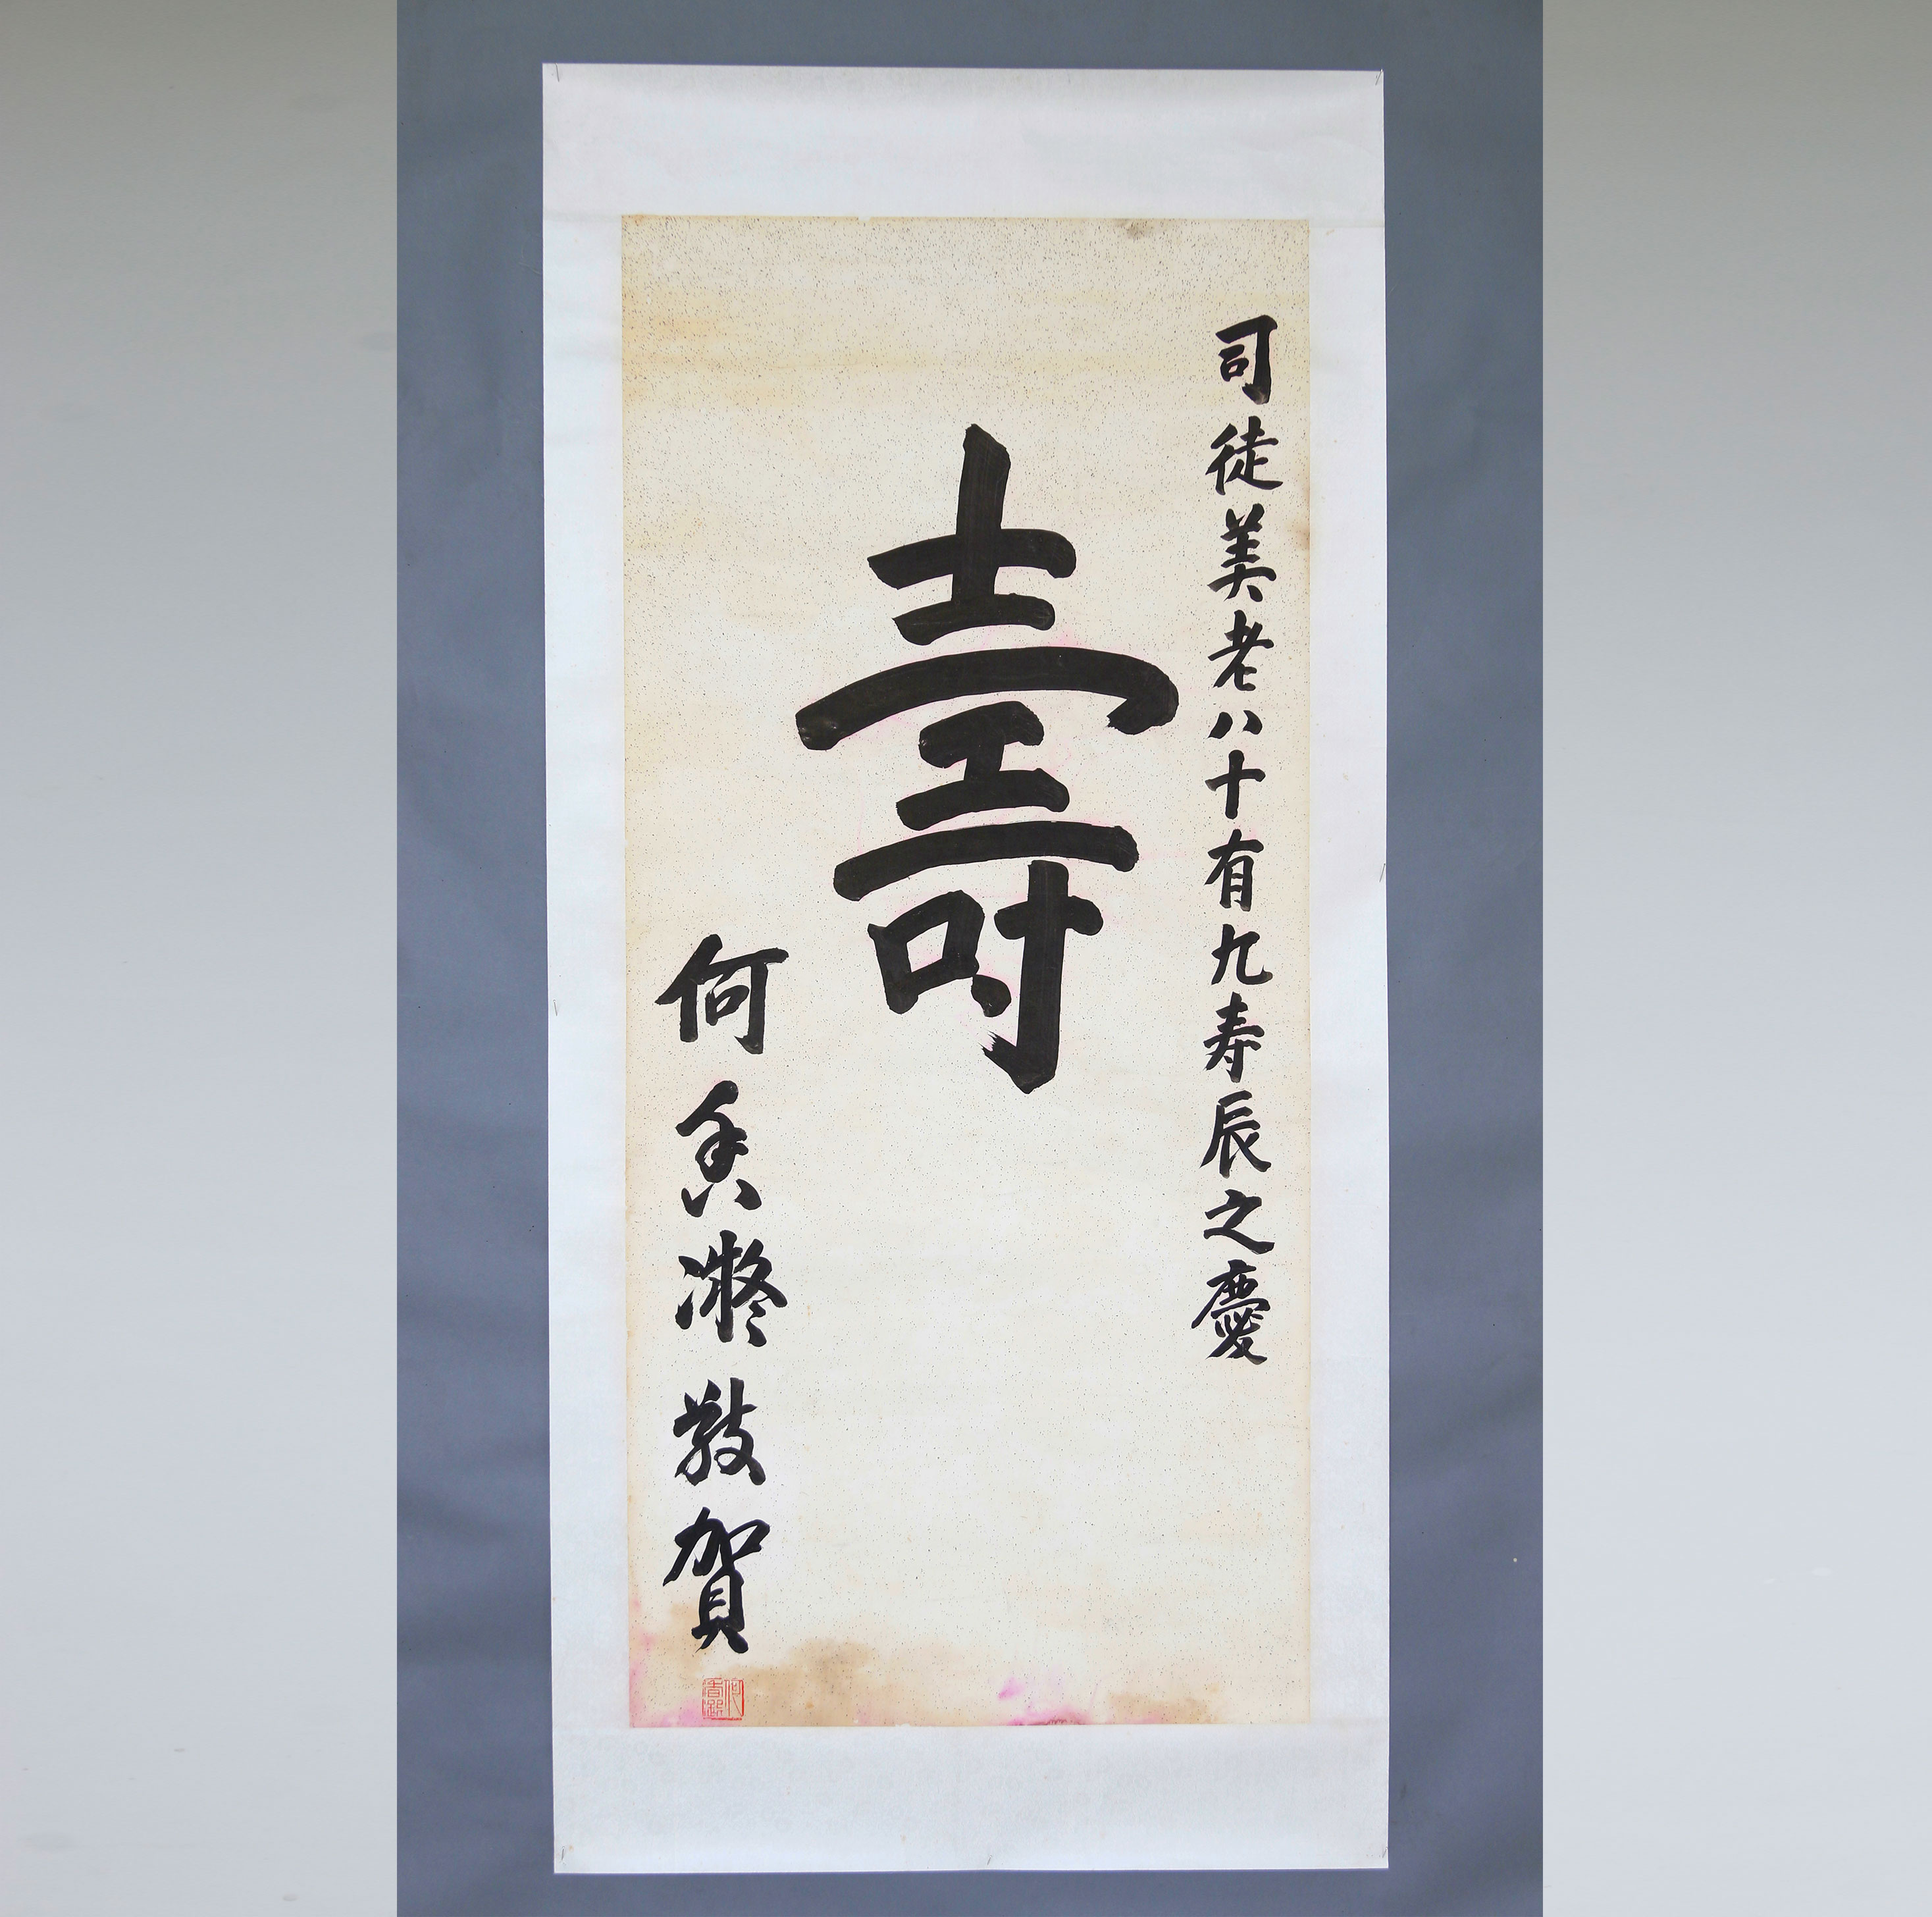 司徒美老八十有九寿辰之慶
壽
何香凝敬賀
何香凝